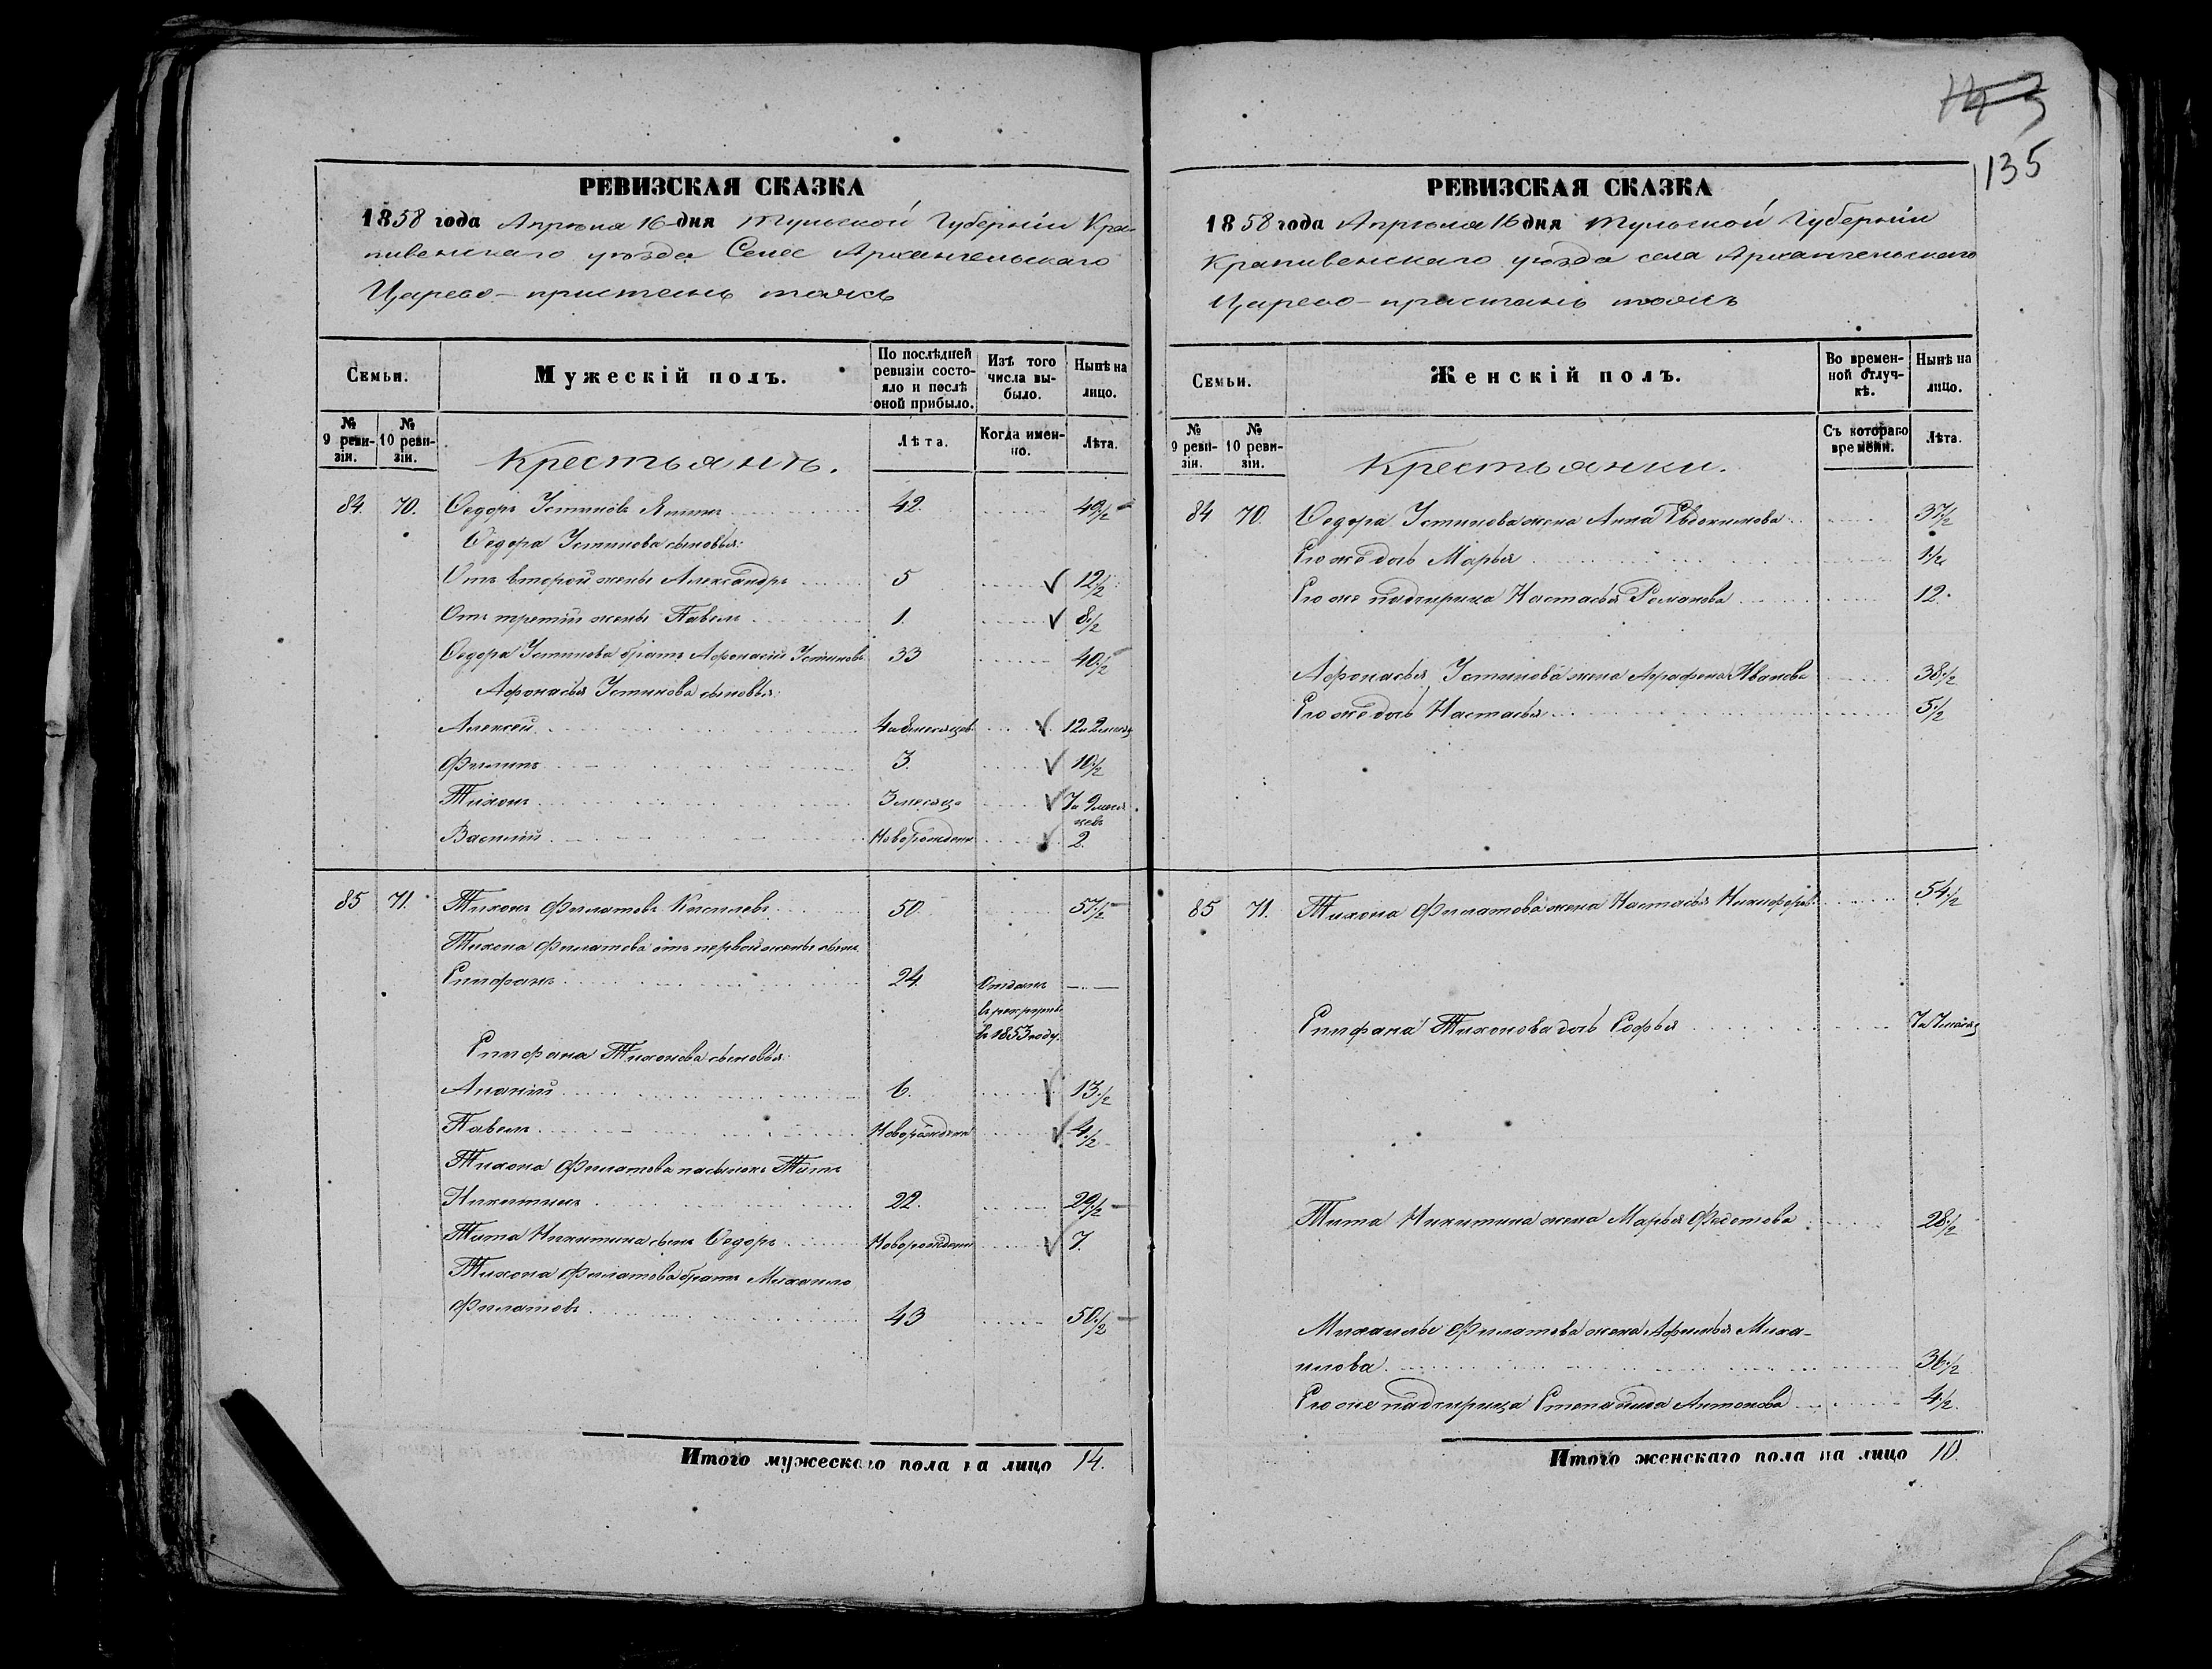 143
135
РЕВИЗСКАЯ СКАЗКА
1858 года Апреля 16 дня Тульской Губерніи Кра-
пивенскаго уѣзда Села Архангельскаго
Царево-пристань тожъ
Семьи.
Мужескій полъ.
По послѣдней ревизіи состояло и послѣ оной прибыло.
Изъ того числа выбыло.
Нынѣ на лицо.
№ 9 реви-зіи.
№ 10 реви-зіи.
Крестьянъ.
Лѣта.
Когда имен-но.
Лѣта.
84. 70. Ѳедоръ Устиновъ 42. 49 1/2
Ѳедора Устинова сыновья:
Отъ второй жены Александръ 5 12 1/2
Отъ третій жены Павелъ 1. 8 1/2
Ѳедора Устинова братъ Афонасій Устиновъ 33 40 1/2
Афонасья Устинова сыновья:
Алексей 4 и 8 месяцов 12 и 2 месяц
Филипъ 3. 10 1/2
Тихонъ 3 месяца 7 и 9 меся
цев
Василій Новорожден 2.
85 71. Тихонъ Филатовъ Киселевъ 50. 57 1/2
Тихона Филатова отъ первой жены сынъ
Епифанъ 24. Отданъ
в рекруты
в 1853 году.
Епифана Тихонова сыновья:
Ананій 6. 13 1/2
Павелъ Новорожден 4 1/2
Тихона Филатова пасынокъ Титъ
Никитинъ 22. 29 1/2
Тита Никитина сынъ Ѳедоръ Новорожден 7.
Тихона Филатова братъ Михаило
Филатовъ 43 50 1/2
Итого мужескаго пола на лицо 14.
РЕВИЗСКАЯ СКАЗКА
1858 года Апреля 16 дня Тульской Губерніи
Крапивенскаго уѣзда села Архангельскаго
Царево-пристань тожъ
Семьи.
Женскій полъ.
Во времен-ной отлуч-кѣ.
Нынѣ на лицо.
№ 9 реви-зіи.
№ 10 реви-зіи.
Крестьянки.
Съ котораго времени.
Лѣта.
84 70. Ѳедора Устинова жена Анна Евдокимова 37 1/2
Ево же дочь Марья 1 1/2
Ево же падчерица Настасья Романова 12.
Афонасья Устинова жена Аграфена Иванова 38 1/2
Ево же дочь Настасья 5 1/2
85 71. Тихона Филатова жена Настасья Никифорова 54 1/2
Епифана Тихонова дочь Софья 7 и 7 месяц
Тита Никитина жена Марья Федотова 28 1/2
Михаилы Филатова жена Афимья Миха-
илова 36 1/2
Ево же падчерица Степанида Антонова 4 1/2
Итого женскаго пола на лицо 10.